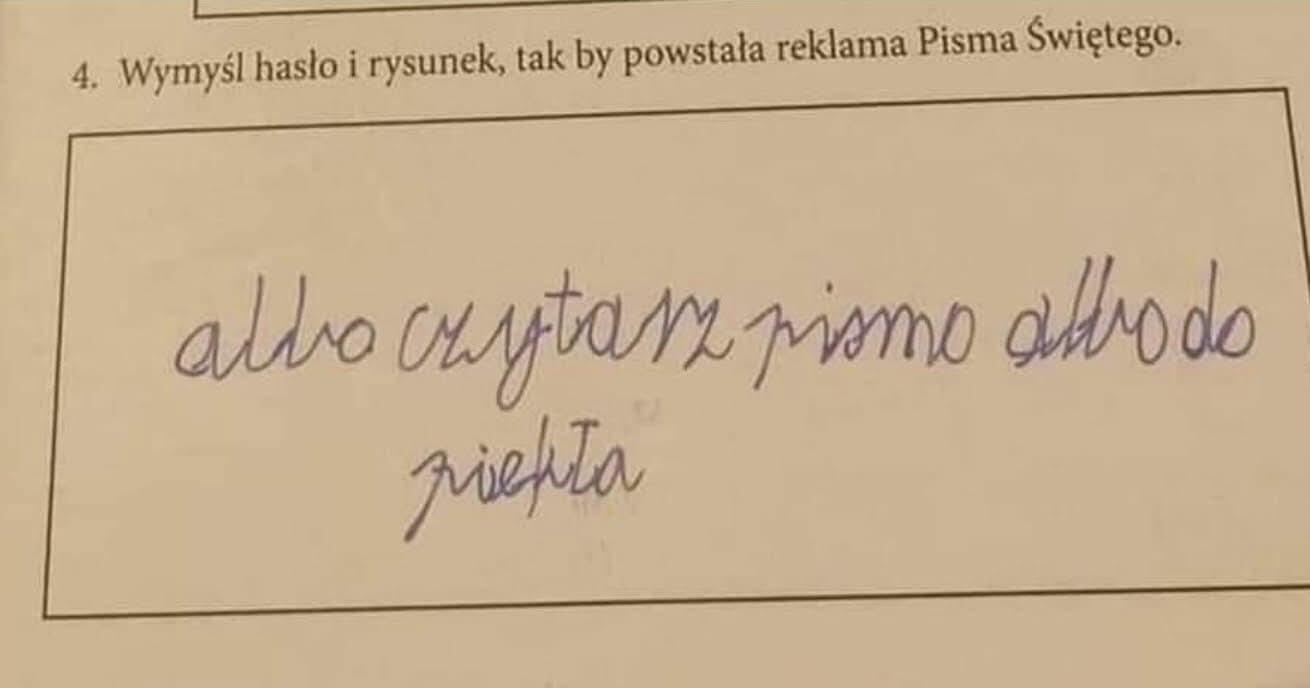 4. Wymyśl hasło i rysunek, tak by powstała reklama Pisma Świętego.
albo czytasz pismo albo do
piekła